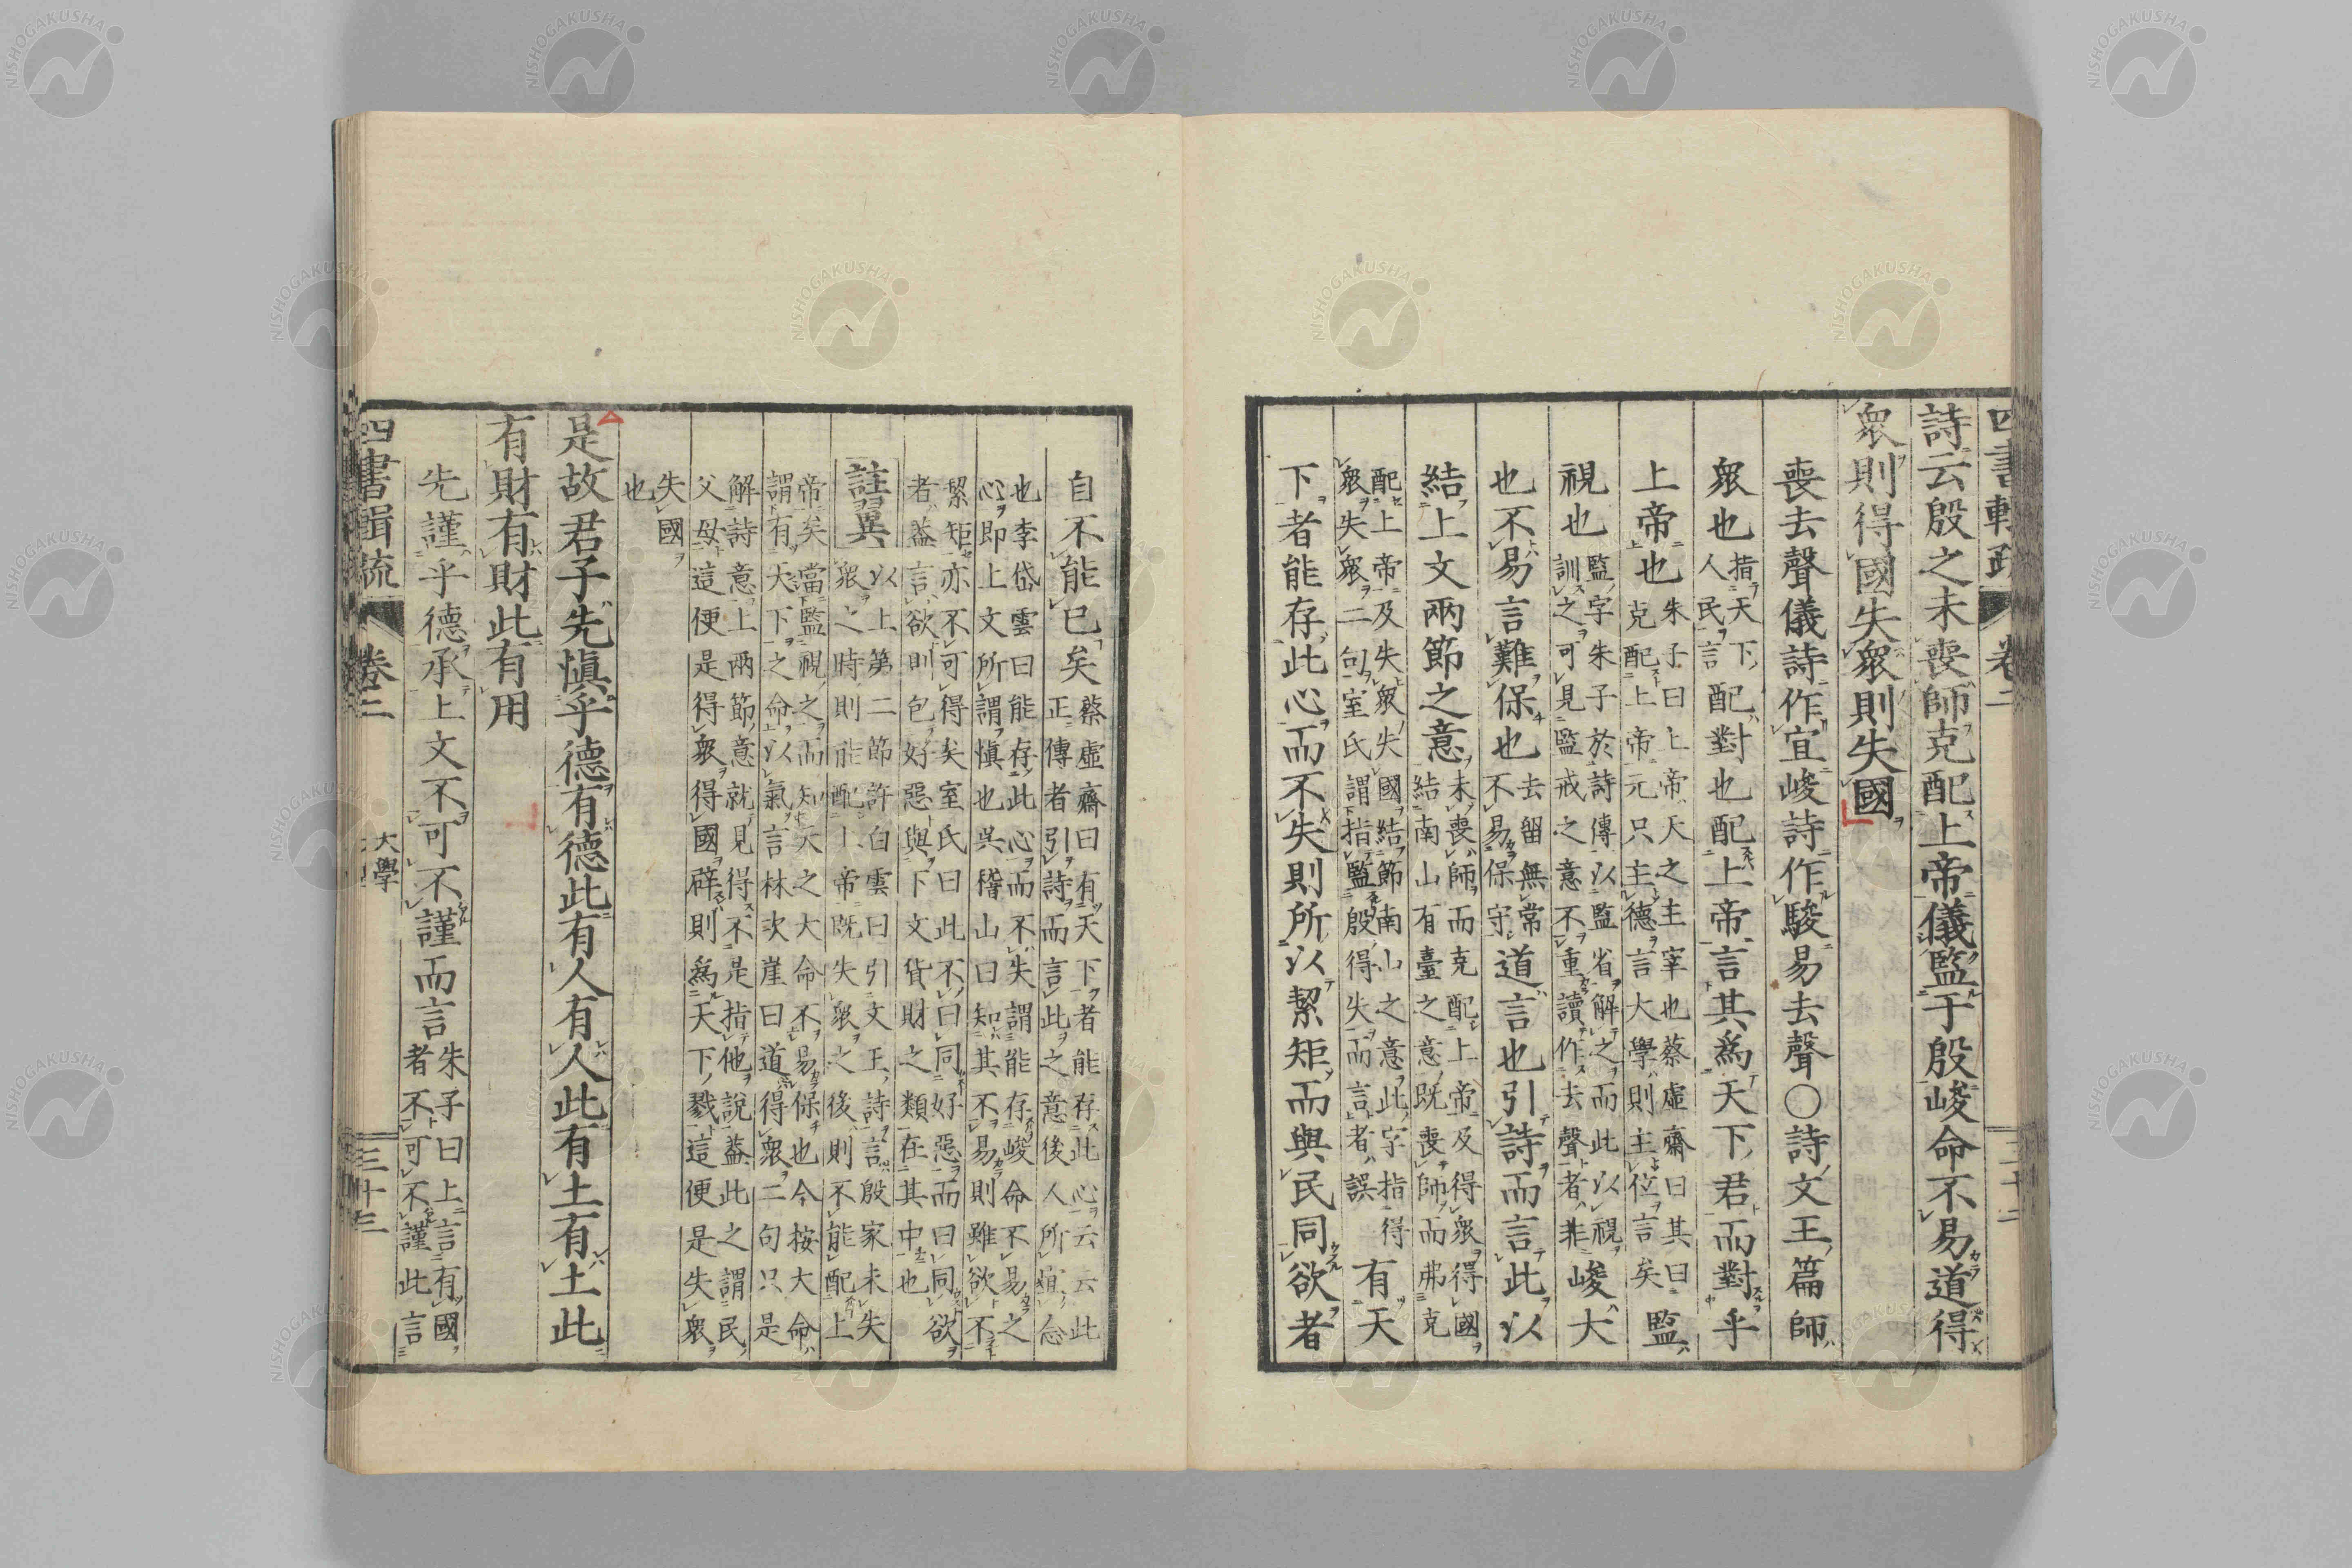 詩云殷之未喪師克配上帝儀監于殷峻命不易道得
衆則得國失衆則失國
喪去聲儀詩作宜峻詩作駿易去聲○詩文王篇師
衆也指天下人民言配對也配上帝言其為天下君而對乎
上帝也朱子曰上帝天之主宰也蔡虛齋曰其曰克配上帝元只主德言大學則主位言矣監
視也監字朱子於詩傳以監省解之而此以視訓之可見監戒之意不重讀作去聲者非峻大
也不易言難保也去留無常不易保守道言也引詩而言此以
結上文兩節之意未喪師而克配上帝及得衆得國結南山有臺之意既喪師而弗克
配上帝及失衆失國結節南山之意此字指得衆失衆二句室氏謂指監殷得失而言者誤有天
下者能存此心而不失則所以絜矩而與民同欲者
四書輯疏 卷二
自不能已矣蔡虛齋曰有天下者能存此心云云此正傳者引詩而言此之意後人所宜念
也李岱雲曰能存此心而不失謂能存峻命不易之心即上文所謂慎也吳稽山曰知其不易則雖欲不
絜矩亦不可得矣室氏曰此不曰同好惡而曰同欲者蓋言欲則包好惡與下文貨財之類在其中也
註翼以上第二節許白雲曰引文王詩言殷家未失衆之時則能配上帝既失衆之後則不能配上
帝矣當監視之而知天之大命不易保也今按大命謂有天下之命以氣言林次崖曰道得衆二句只是
解詩意上兩節意就見得不是指他說蓋此之謂民父母這便是得衆得國辟則為天下戮這便是失衆
失國也
是故君子先慎乎德有德此有人有人此有土有土此
有財有財此有用
先謹乎德承上文不可不謹而言朱子曰上言有國者不可不謹此言
四書輯疏 卷二 大學 三十三